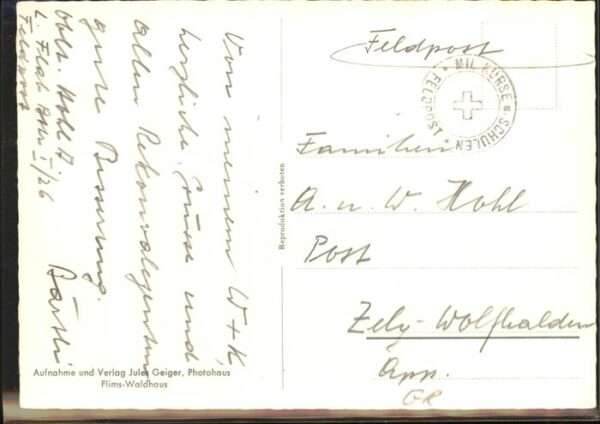 Von meinem W+K,
herzliche Grüsse und
allen Rekonvaleszenten
gute Besserung.
Bärtli
Oblt. Hohl A
L. Flab Abt I/26
Feldpost
Feldpost
MIL. KURSE u. SCHULEN
FELDPOST
Familien
A. u. W. Hohl
Post
Zelg-Wolfhalden
App.
GR
Reproduktion verboten
Aufnahme und Verlag Jules Geiger, Photohaus
Flims-Waldhaus